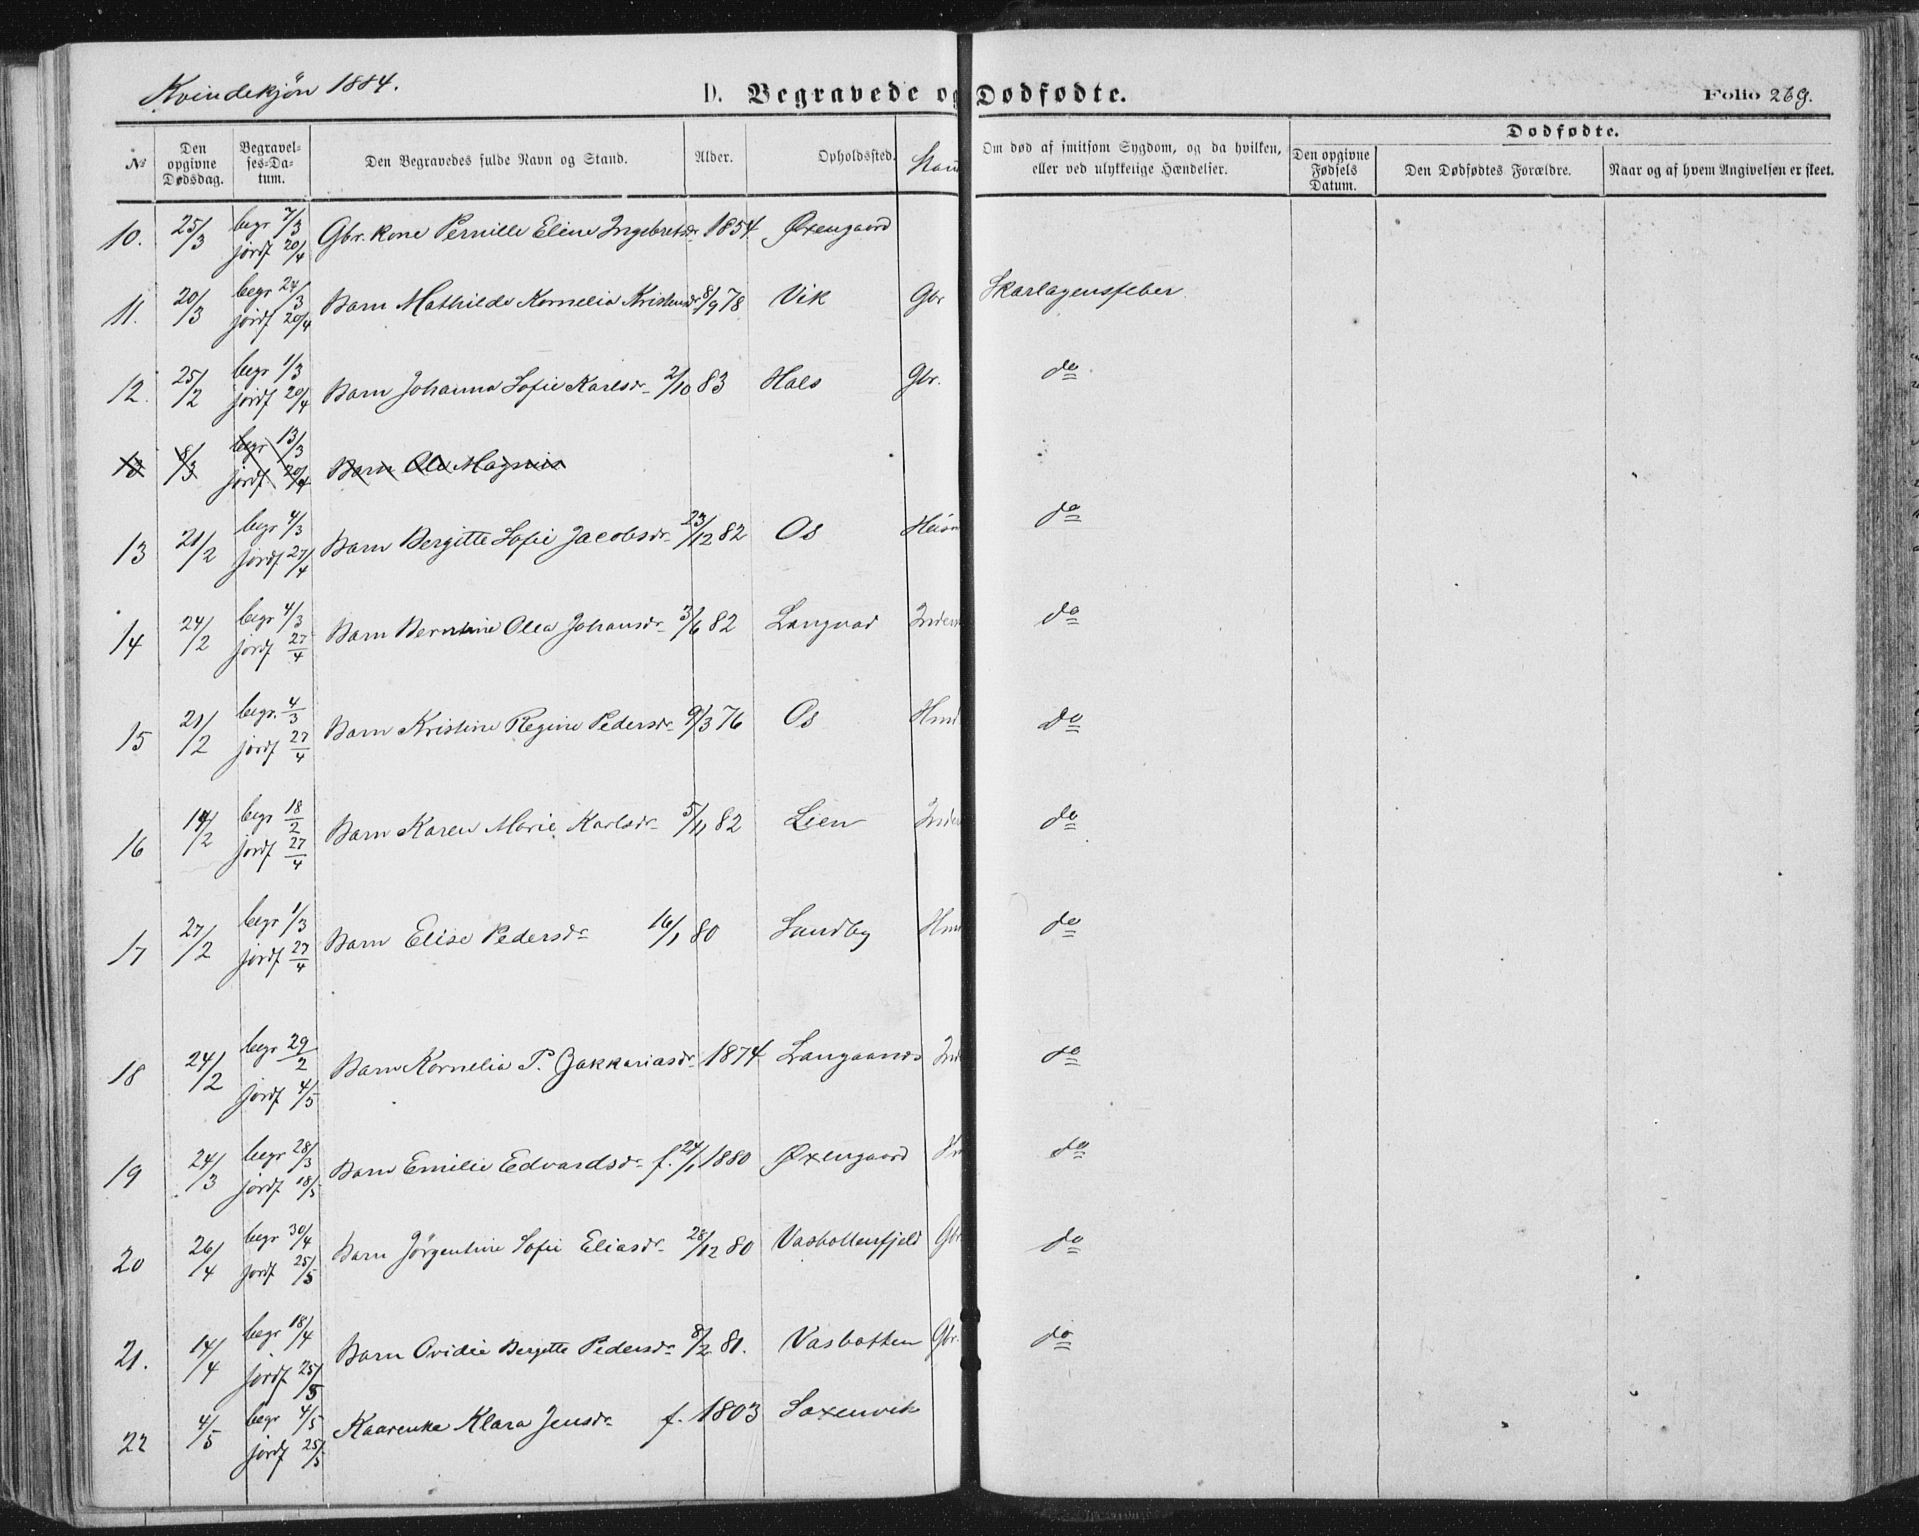 Kvindekjön 1884.
D. Begravede og Dødfødte.
Folio 269.
Dødfødte.
No
Den opgivne Dødsdag.
Begravelses-Datum.
Den Begravedes fulde Navn og Stand.
Alder.
Opholdssted.
Om død af smitsom Sygdom, og da hvilken, eller ved ulykkelige Hændelser.
Den opgivne Fødsels Datum.
Den Dødfødtes Forældre.
Naar og af hvem Angivelsen er skeet.
10. 25/3 begr 7/3 jordf 20/4 Gbr. kone Pernille Eline Ingebretsdr 1854 Øxengaard
11. 20/3 begr 24/3 jordf 20/4 Barn Mathilde Kornelia Kristensdr 8/9 78 Vik Gbr Skarlagensfeber
12. 25/2 begr 1/3 jordf 20/4 Barn Johanna Sofie Karlsdr 2/10 83 Hals Gbr. do
13 8/3 begr 13/3 jordf 20/4 Barn Ole Magnus
13 21/2 begr 4/3 jordf 27/4 Barn Bergitte Sofie Jacobsdr 23/12 82 Os Husm do
14 24/2 begr 4/3 jordf 27/4 Barn Berntine Olea Johansdr 3/6 82 Langvad Inders do
15 21/2 begr. 4/3 jordf 27/4 Barn Kristine Regine Pedersdr 9/3 76 Os Hmd do
16 14/2 begr 18/2 jordf 27/4 Barn Karen Marie Karlsdr 5/11 82 Lien Inders do
17 27/2 begr 1/3 jordf 27/4 Barn Elise Pedersdr 16/1 80 Sandby Hm do
18 24/2 begr 29/2 jordf 4/5 Barn Kornelia P. Zakkariasdr 1874 Langaanes Ind do
19 24/3 begr 28/3 jordf 18/5 Barn Emilie Edvardsdr f. 24/1 1880 Øxengaard Hm do
20 26/4 begr 30/4 jordf 25/5 Barn Jörgentine Sofie Eliasdr 28/12 80 Vasbottenfjeld Gbr do
21. 14/4 begr 18/4 jordf 25/5 Barn Ovidie Bergitte Pedersdr 8/2 81. Vasbotten Gbr. do
22 4/5 begr 4/5 jordf 25/5 Kaarenka Klara Jensdr f. 1803 Saxenvik